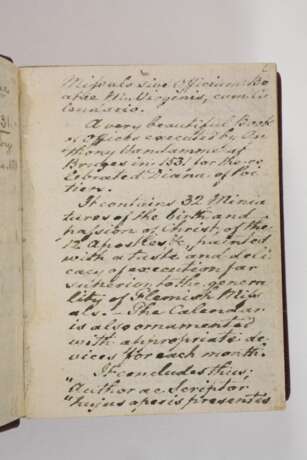 2
Missale sive officium Be
atae M. Virginis, cum Ca
lendario.
A very beautiful Book
of Offices executed by An
thony Vandamme at
Bruges in 1531 for the ce
lebrated Diana of Poi
tiers.
It contains 32 Minia
tures of the birth and
passion of Christ, of the
12 Apostles, &c, painted
with a taste and deli
cacy of execution far
superior to the genera
lity of Flemish Miss
als. - The Calendar
is also ornamented
with appropriate de
vices for each month.
It concludes thus;
"Author ac Scriptor
"hujus operis presentis
31.